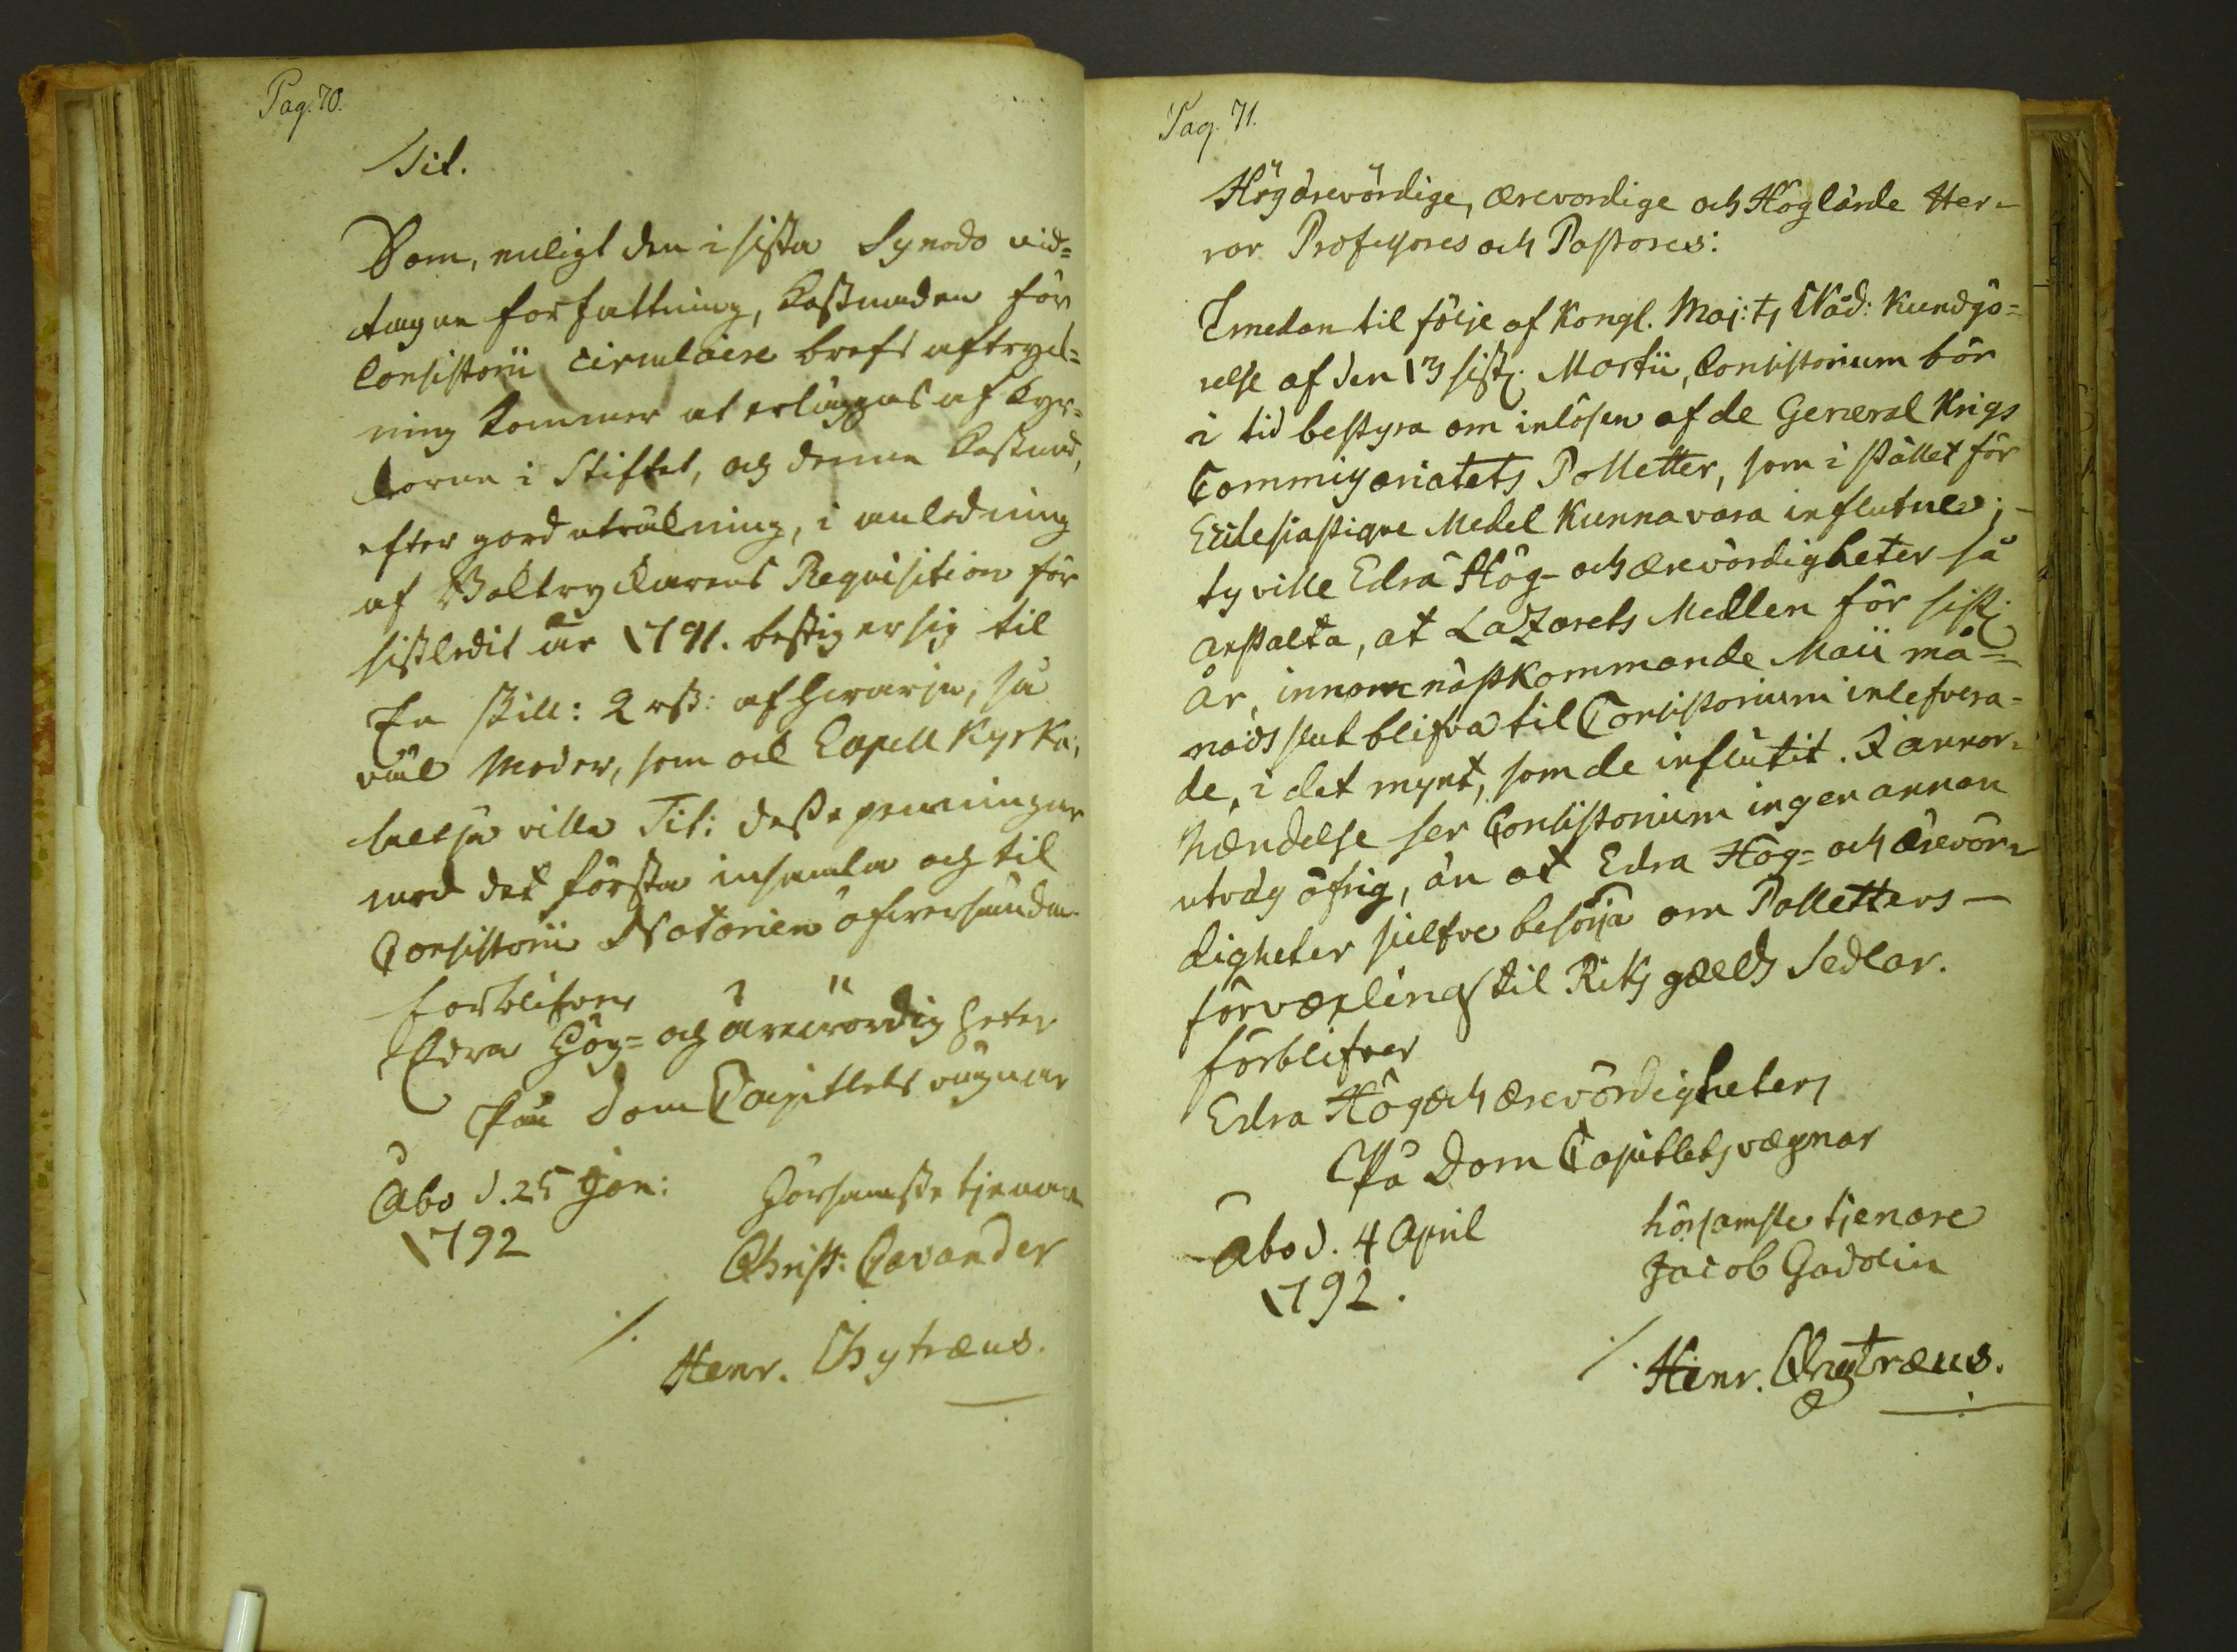 Pag. 70.
Tit.
Som, enligt den i sista Synodo vid=
tagne forfattning, Kostnaden för
Consistorii circulaire brefs aftryck=
ning kommer at erläggas af Kyr=
korne i Stiftet, och denne Kostnad,
efter gord uträkning, i anledning
af Boktryckarens Requisition för
sistledit år 1791. bestiger sig til
En skill: 2 rst: af hvarje, så
väl Moder, som ock Capell Kyrka;
altså ville Tit: desse penningar
med det första insamla och til
Consistorii Notarien öfversända.
förblifver
Edra Hög= och ärevördigheters
På Dom Capitlets vägnar
Åbo d. 25 Jan:
hörsamste tjenare
1792
Christ: Cavander
/.
Henr. Chytræus.
Pag. 71.
Högärevördige, ærevordige och Höglärde Her=
rar Professores och Pastores:
Emedan til följe af Kongl. Maj:ts Nåd: Kundgö=
relse af den 13 sistl. Martii, Consistorium bör
i tid bestyra om inlösen af de General Krigs
Commissariatets Polletter, som i stället för
Ecclesiastique Medel kunna vara influtne; -
ty ville Edra Hög- och ærevördigheter så
anstalta, at Lazarets Medlen för sistl.
år, innom nästkommande Maii må=
nads slut blifva til Consistorium inlefvera=
de, i det mynt, som de influtit. I annor=
hændelse ser Consistorium ingen annan
utväg öfrig, än at Edra Hög= och ärevör=
digheter sielfve besörja om Polletters —
förvæxling til Riks gælds Sedlar.
förblifver
Edra Hög och ærevördigheters
På Dom Capitlets vægnar
Åbo d. 4 April
hörsamste tjenare
1792.
Jacob Gadolin
/.
Henr. Chytræus.